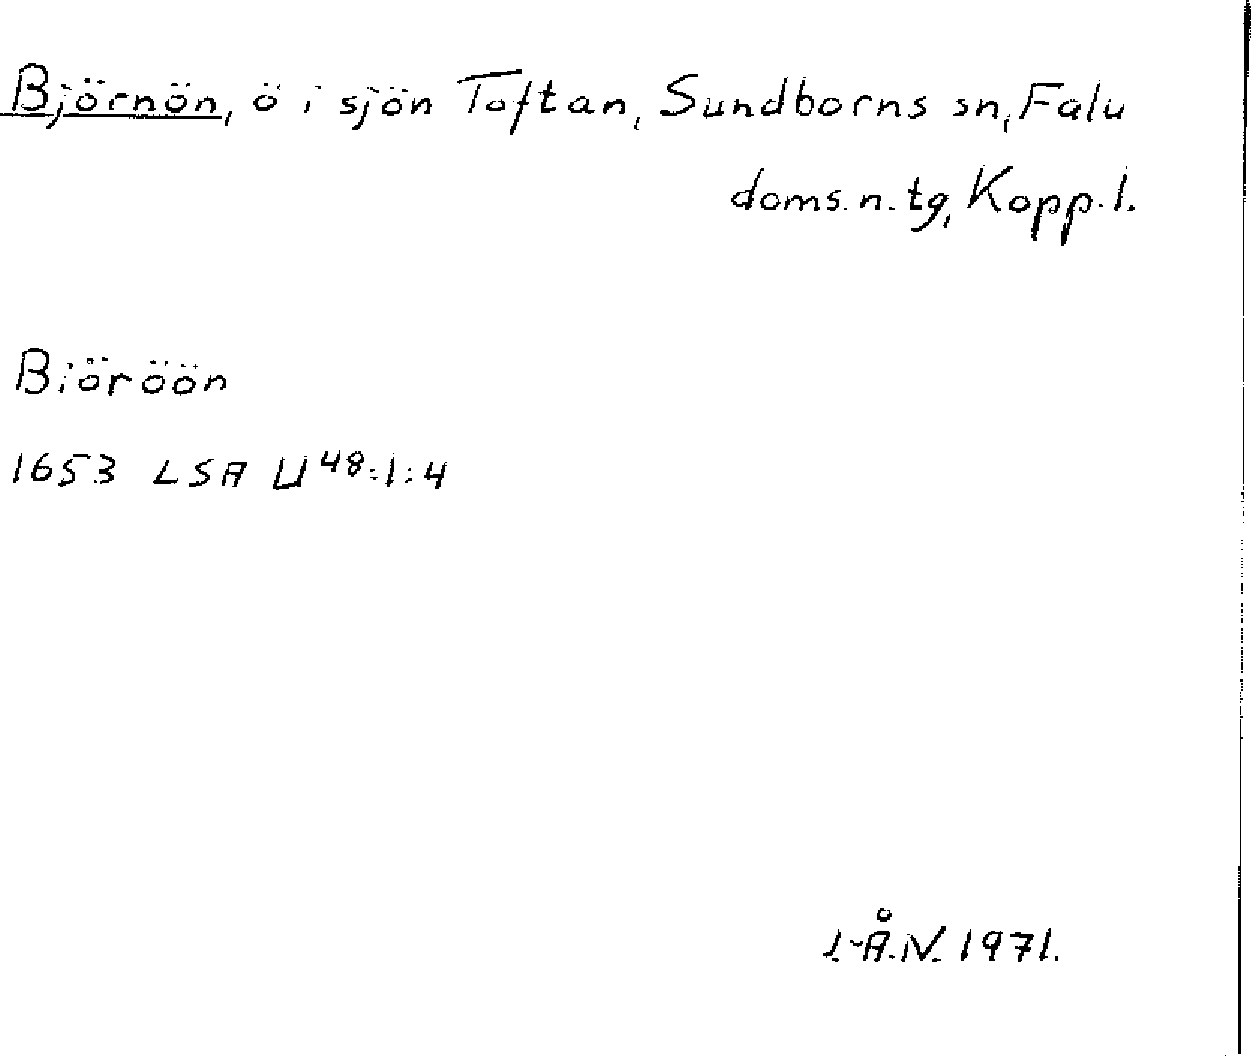 Björnön, ö i sjön Toftan, Sundborns sn, Falu
doms.n. tg, Kopp. l.
Biöröön
1653 LSA U 48:1:4
L-Å.N. 1971.